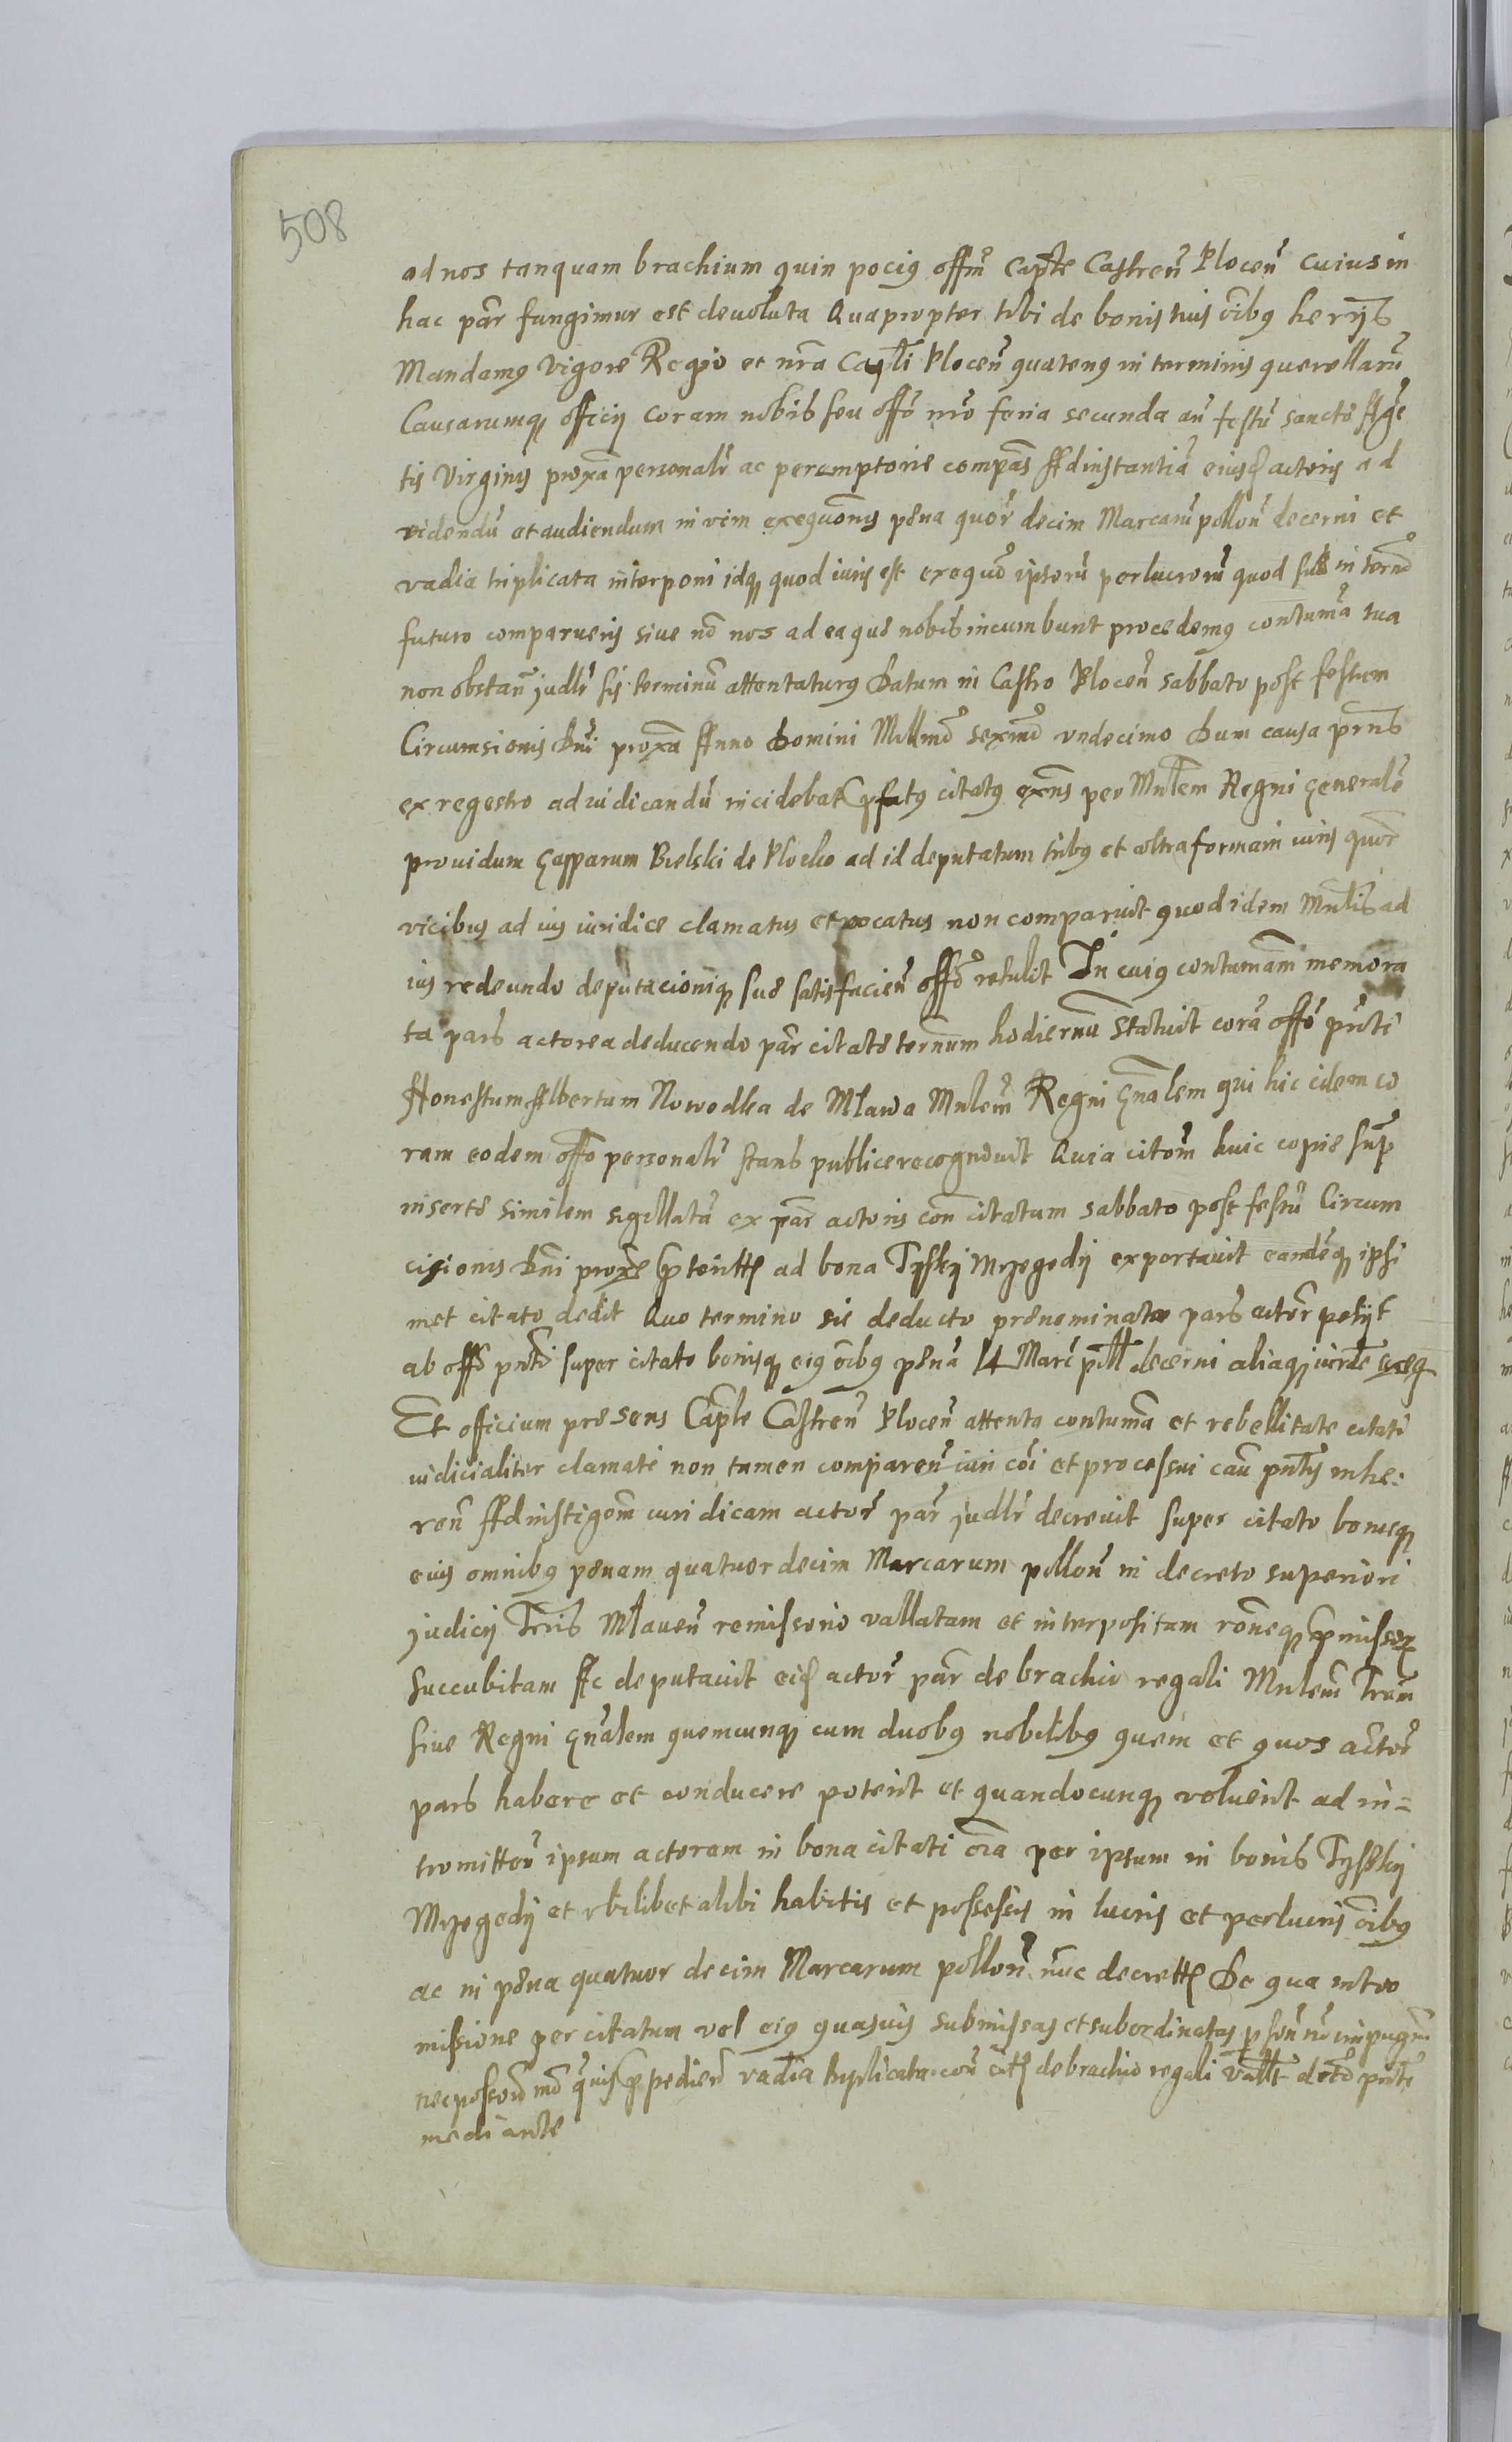 508
ad nos tanquam brachium quin pocig offm̃ Capt̃e Castren̄ Plocen̄ cuius in
hac par̃ fungimur est devoluta Quapropter tibi de bonis tuis oĩbg
Mandamg vigore Regio et nr̃a Cap̃li Plocen̄ quateng in terminis querellarũ
Causarumq officij coram nobis seu offõ nrõ feria secunda an̄ festũ sanctæ Agñe
tis Virginis proxã personalr̃ ac peremptorie compãs Ad instantiã eiusd actoris ad
videndũ et audiendum in vim exequõnis pæna quor̃ decim Marcarũ pollon̄ decerni et
vadia triplicata interponi idq quod iuris est exequõ ipsorũ perlucrorũ quod sive in termõ
futuro comparueris sive nõ nos ad ea quæ nobis incumbunt procedemg contumã tua
non obstan̄ judlr̃ sis terminũ attentaturg Datum in Castro Plocen̄ sabbato post festum
Circumsionis Dnĩ proxã Anno Domini Millmõ sexmõ vndecimo Dum causa prñs
ex regestro ad iudicandũ incidebat pfatg citatg exñs per Mnl̃em Regni Generalẽ
providum Gasparum Bielski de Plocko ad id deputatum tribg et vltra formam iuris quor̃
vicibus ad ius iuridice clamatus et vocatus non comparuit quod idem Mnl̃is ad
ius redeundo deputacioniq suæ satisfacien̄ offõ retulit In cuig contumãm memora
ta pars actorea deducendo par̃ citatæ terñum hodiernũ statuit corã offõ prñti
Honestum Albertum Nowodka de Mlawa Mnlem̃ Regni Gñalem qui hic idem co
ram eodem offo personalr̃ stans publice recognouit Quia citom̃ huic copiæ sup̃
insertæ similem sigillatã ex par̃ actoris con̄ citatum sabbato post festũ Circum
cisionis Dnĩ proxẽ pteritt ad bona Tyski Mrzegodij exportavit eandẽq ipsi
met citato dedit Quo termino sic deducto prænominata pars actor̃ petijt
ab offõ pntĩ super citato bonisq eig oĩbg pænã 14 Marc̃ pll̃ decerni aliaq iurdẽ exeq
Et officium præsens Cap̃le Castren̄ Plocen̄ attenta contumã et rebellitate citati
iudicialiter clamati non tamen comparen̄ iuri cõi et processui cau pñtis inhæ:
ren̄ Ad instigom̃ iuridicam actor̃ par̃ judlr̃ decrevit super citato bonisq
eius omnibg pænam quatuordecim Marcarum pollon̄ in decreto superiori
judicij Trr̃is Mlaven̄ remissorio vallatam et interpositam rõneq pmissor
succubitam Ac deputavit eid actor̃ par̃ de brachio regali Mnlem̃ Trr̃m
sive Regni Gñalem quemcunq cum duobg nobilibg quem et quos actor̃
pars habere et conducere poterit et quandocunq voluerit ad in=
tromitten̄ ipsum actorem in bona citati oĩa per ipsum in bonis Tyski
Mrzegodij et vbilibet alibi habitis et possessis in lucris et perlucris oĩbg
ac in pæna quatuor decim Marcarum pollon̄ nũc decrett De qua intro
missione per citatum vel eig quasvis submissas et subordinatas pson̄ nõ impugñ
nec posson̄ mõ quis ppedien̄ vadia triplicata con̄ citt de brachio regali vallt detõ pñte
mediante